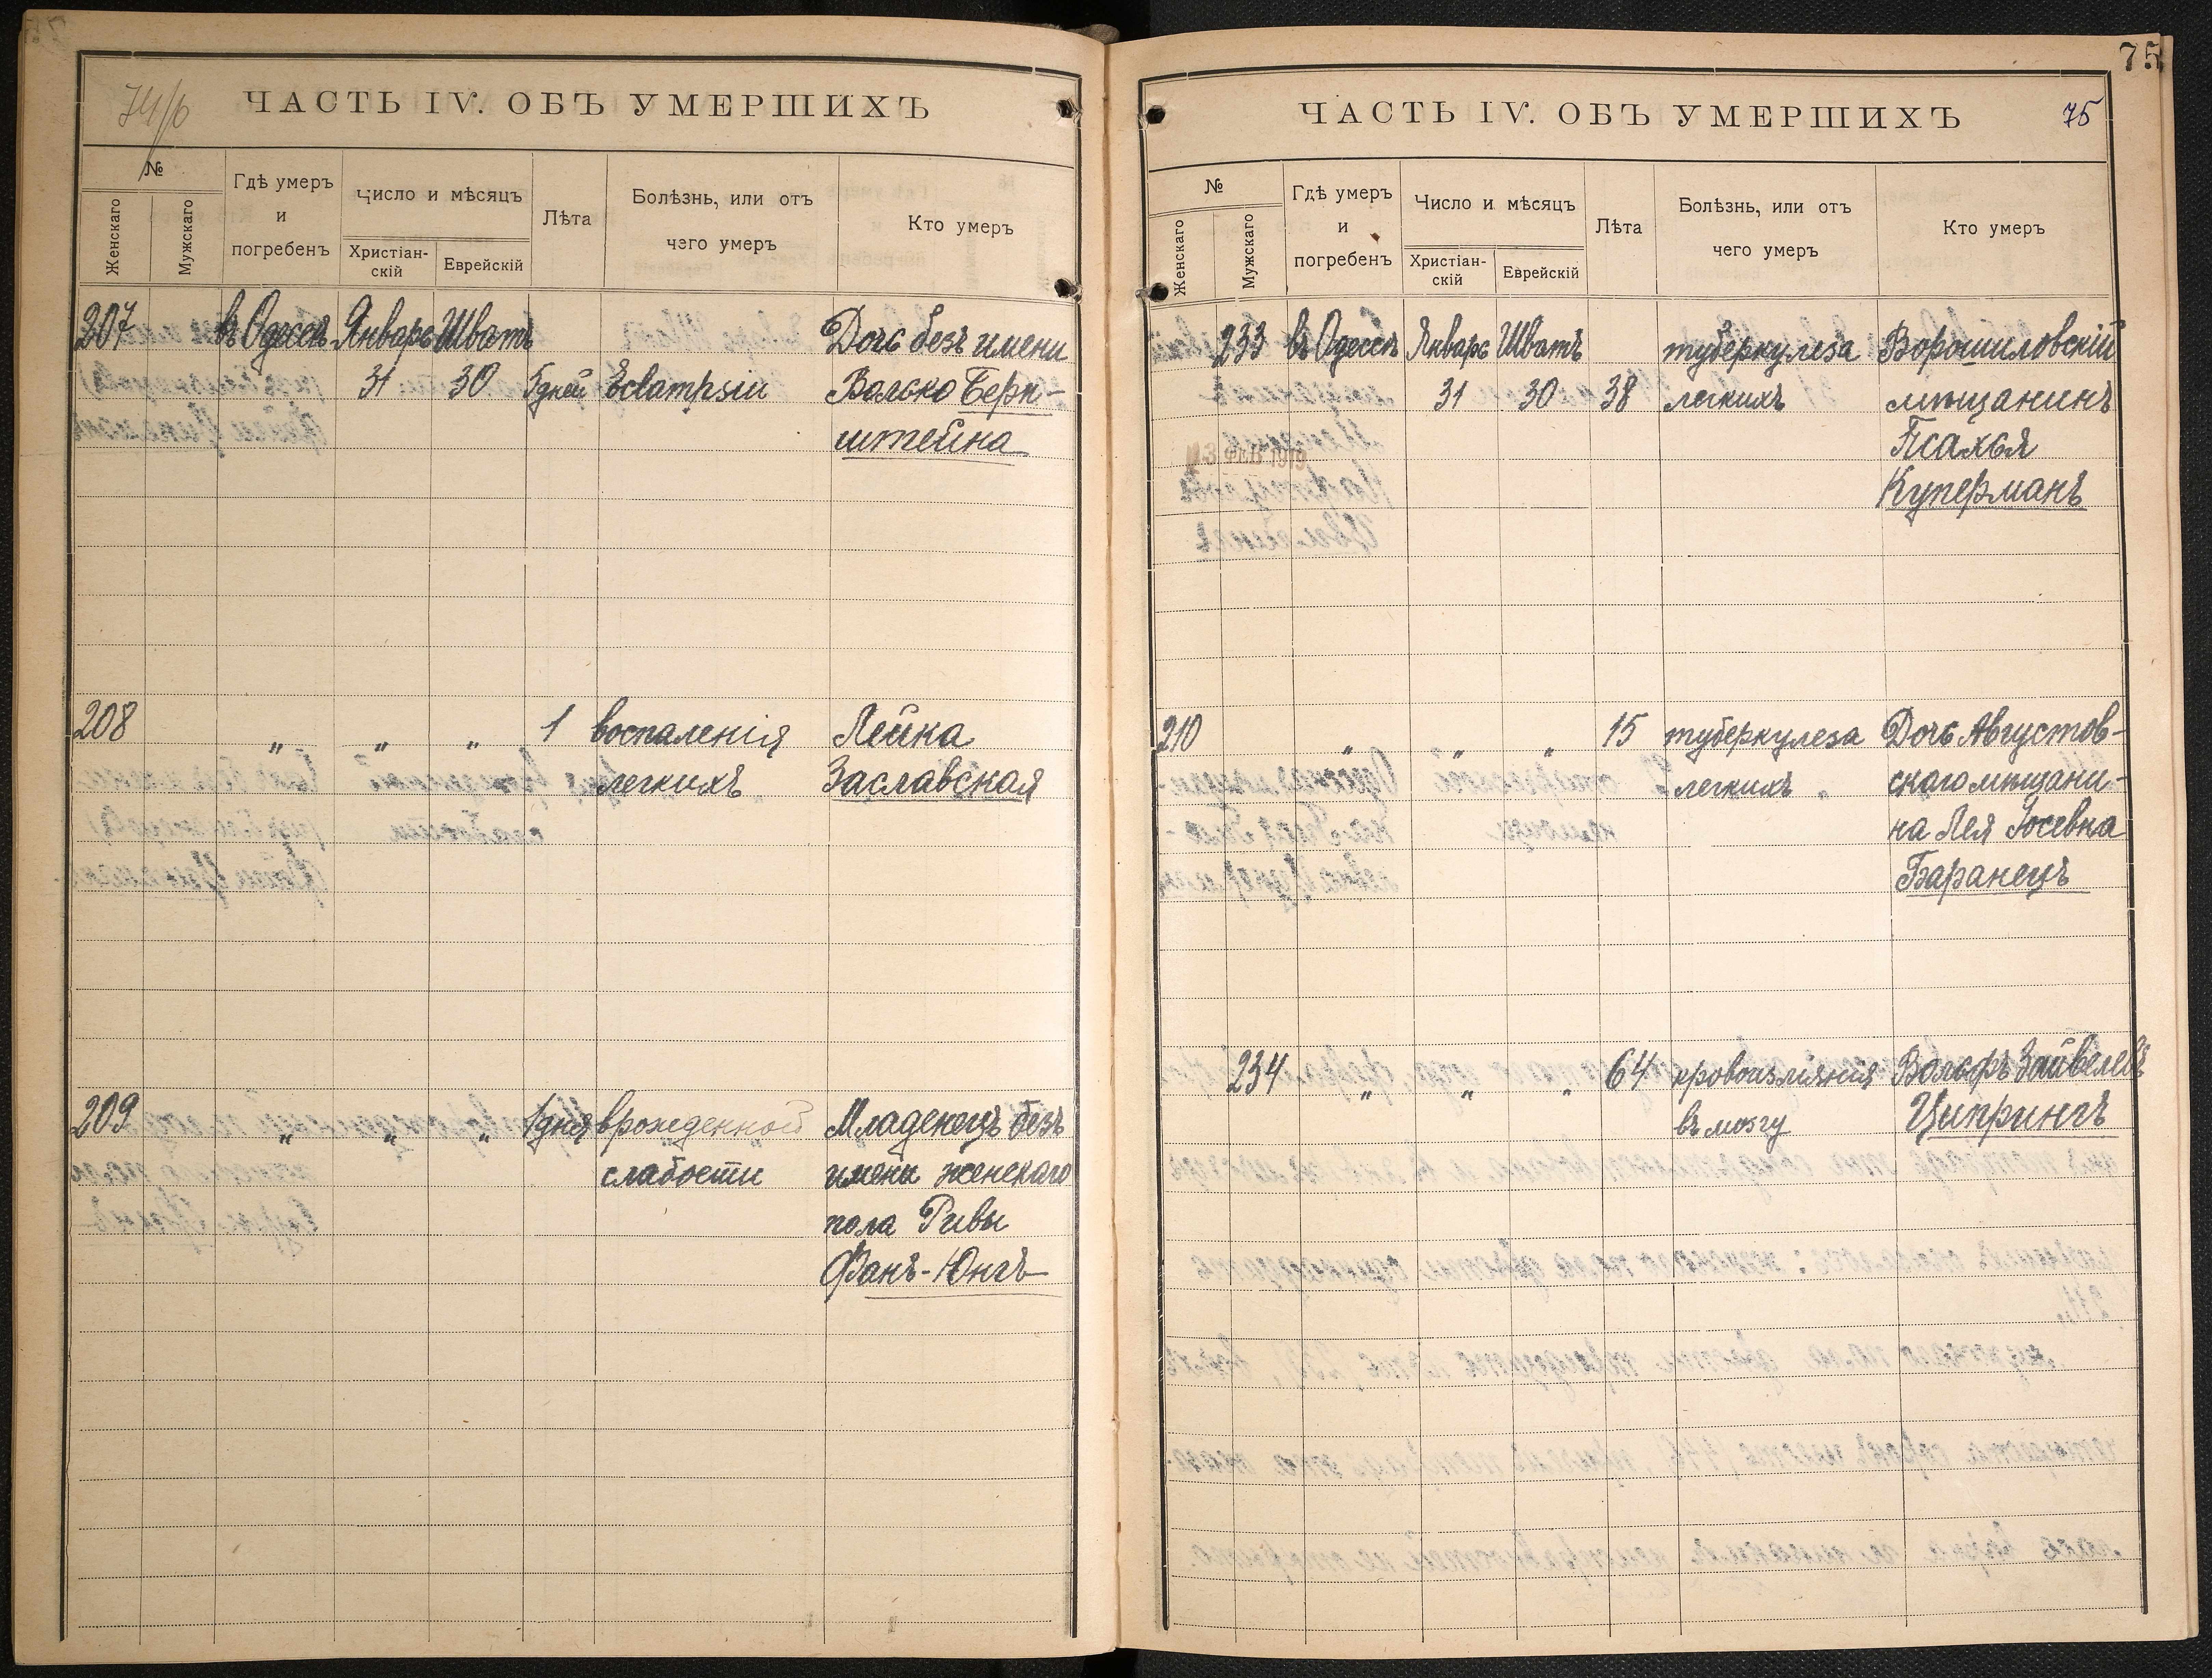 74/б
ЧАСТЬ IV. ОБЪ УМЕРШИХЪ
№
Женскаго
Мужскаго
Гдѣ умеръ
и
погребенъ
Число и мѣсяцъ
Христіан-
скій
Еврейскій
Лѣта
Болѣзнь, или отъ
чего умеръ
Кто умеръ
207 въ Одессѣ Январь Шватъ Дочь безъ имени
31 30 5 дней Eclampsiu Волько Берн-
штейна
208 " " " 1 воспаленія Лейка
легкихъ Заславская
209 " " " 1 дня врожденной Младенецъ безъ
слабости имени женскаго
пола Ривы
Фанъ-Юнгъ
75
ЧАСТЬ IV. ОБЪ УМЕРШИХЪ
75
№
Женскаго
Мужскаго
Гдѣ умеръ
и
погребенъ
Число и мѣсяцъ
Христіан-
скій
Еврейскій
Лѣта
Болѣзнь, или отъ
чего умеръ
Кто умеръ
233 въ Одессѣ Январь Шватъ туберкулеза Ворошиловскій
31 30 38 легкихъ мѣщанинъ
Псахья
Куперманъ
210 " " " 15 туберкулеза Дочь Августов-
легкихъ скаго мѣщани-
на Лея Іосевна
Баранецъ
234 " " " 64 кровоизліянія Вольфъ Зайвелевъ
въ мозгу Ципрингъ